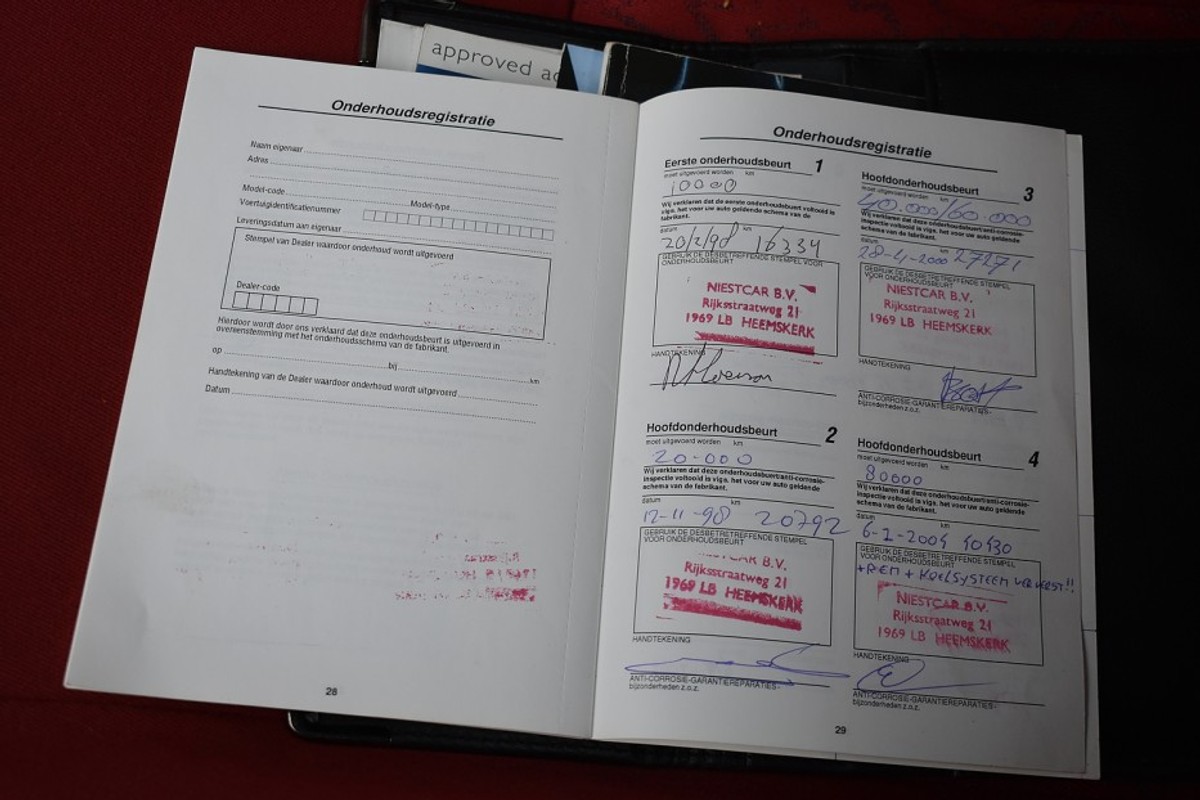 approved
Onderhoudsregistratie
Naam eigenaar
Adres
Model-code
Model-type
Voertuigidentificatienummer
Leveringsdatum aan eigenaar
Stempel van Dealer waardoor onderhoud wordt uitgevoerd
Dealer-code
Hierdoor wordt door ons verklaard dat deze onderhoudsbeurt is uitgevoerd in
overeenstemming met het onderhoudsschema van de fabrikant.
op
bij
km
Handtekening van de Dealer waardoor onderhoud wordt uitgevoerd
Datum
28
Onderhoudsregistratie
Eerste onderhoudsbeurt 1
moet uitgevoerd worden km
10000
Wij verklaren dat de eerste onderhoudsbeurt voltooid is
vlgs. het voor uw auto geldende schema van de
fabrikant.
datum km
20/2/98 16334
GEBRUIK DE DESBETREFFENDE STEMPEL VOOR
ONDERHOUDSBEURT
NIESTCAR B.V.
Rijksstraatweg 21
1969 LB HEEMSKERK
HANDTEKENING
Hoofdonderhoudsbeurt 2
moet uitgevoerd worden km
20-000
Wij verklaren dat deze onderhoudsbeurt/anti-corrosie-
inspectie voltooid is vlgs. het voor uw auto geldende
schema van de fabrikant.
datum km
12-11-98 20792
GEBRUIK DE DESBETREFFENDE STEMPEL
VOOR ONDERHOUDSBEURT
NIESTCAR B.V.
Rijksstraatweg 21
1969 LB HEEMSKERK
HANDTEKENING
ANTI-CORROSIE-GARANTIEREPARATIES-
bijzonderheden z.o.z.
Hoofdonderhoudsbeurt 3
moet uitgevoerd worden km
40.000/60.000
Wij verklaren dat deze onderhoudsbeurt/anti-corrosie-
inspectie voltooid is vlgs. het voor uw auto geldende
schema van de fabrikant.
datum km
28-4-2000 27271
GEBRUIK DE DESBETREFFENDE STEMPEL
VOOR ONDERHOUDSBEURT
NIESTCAR B.V.
Rijksstraatweg 21
1969 LB HEEMSKERK
HANDTEKENING
ANTI-CORROSIE-GARANTIEREPARATIES-
bijzonderheden z.o.z.
Hoofdonderhoudsbeurt 4
moet uitgevoerd worden km
80000
Wij verklaren dat deze onderhoudsbeurt/anti-corrosie-
inspectie voltooid is vlgs. het voor uw auto geldende
schema van de fabrikant.
datum km
6-2-2004 40430
GEBRUIK DE DESBETREFFENDE STEMPEL
VOOR ONDERHOUDSBEURT
+RIEM + KOELSYSTEEM VERVERST!!
NIESTCAR B.V.
Rijksstraatweg 21
1969 LB HEEMSKERK
HANDTEKENING
ANTI-CORROSIE-GARANTIEREPARATIES-
bijzonderheden z.o.z.
29